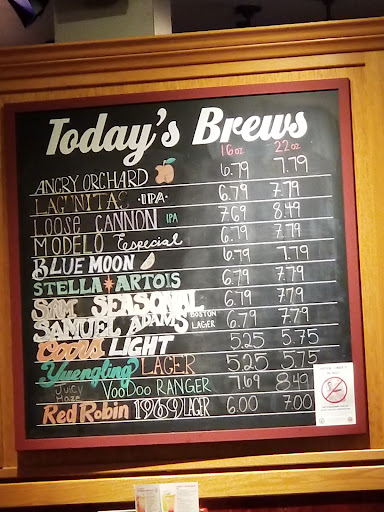 Today's Brews
16oz 22oz
ANGRY ORCHARD 6.79 7.79
LAGUNITAS ·IPA· 6.79 7.79
LOOSE CANNON IPA 7.69 8.49
MODELO Especial 6.79 7.79
BLUE MOON 6.79 7.79
STELLA ARTOIS 6.79 7.79
SAM SEASONAL 6.79 7.79
SAMUEL ADAMS BOSTON LAGER 6.79 7.79
Coors LIGHT 5.25 5.75
Yuengling LAGER 5.25 5.75
JUICY HAZE VOODOO RANGER 7.69 8.49
Red Robin 1969 LAGR 6.00 7.00